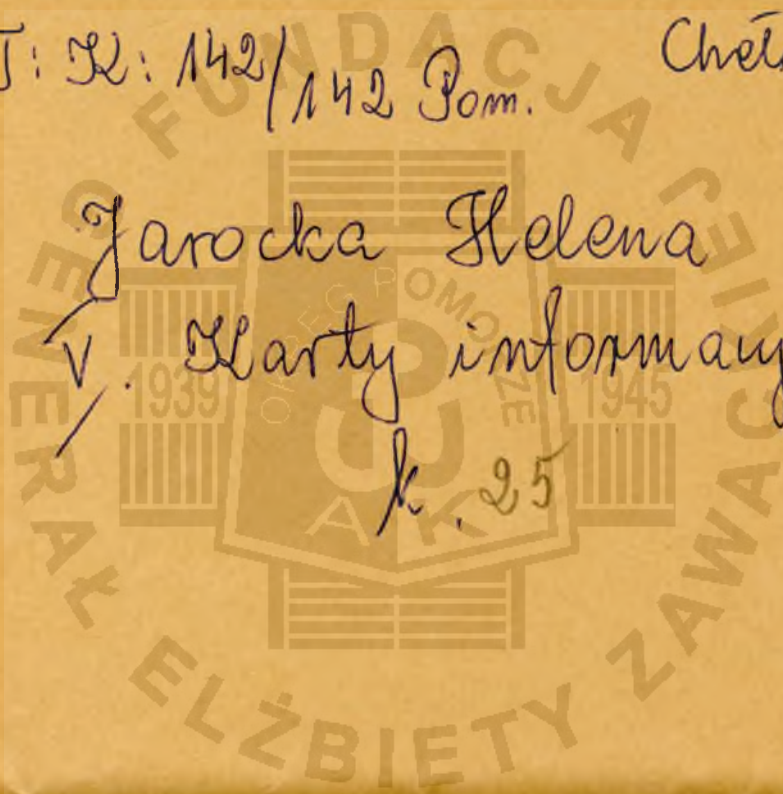 T: K: 142/142 Pom.
Jarocka Helena
V. Karty informacy
k. 25
FUNDACJA GENERAŁ ELŻBIETY ZAWACKIEJ
OKRĘG POMORZE
1939
1945
AK